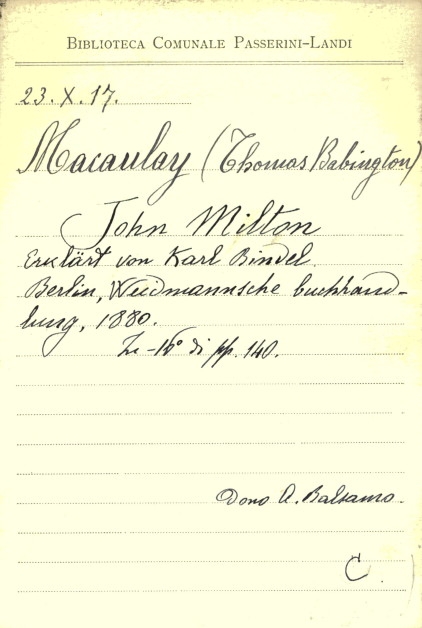 BIBLIOTECA COMUNALE PASSERINI-LANDI
23. X. 17.
Macaulay (Thomas Babington)
John Milton
Erklärt von Karl Bindel.
Berlin, Weidmannsche buchhand-
lung, 1880.
In-16° di pp. 140.
Dono A. Balsamo.
C.